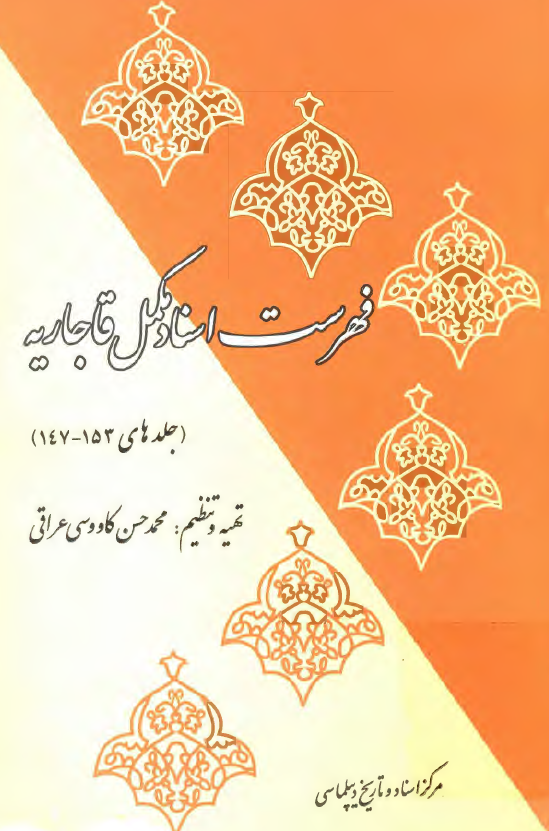 فهرست اسناد مکمل قاجاریه
(جلدهای ۱۵۳-۱٤۷)
تهیه و تنظیم: محمدحسن کاووسی عراقی
مرکز اسناد و تاریخ دیپلماسی